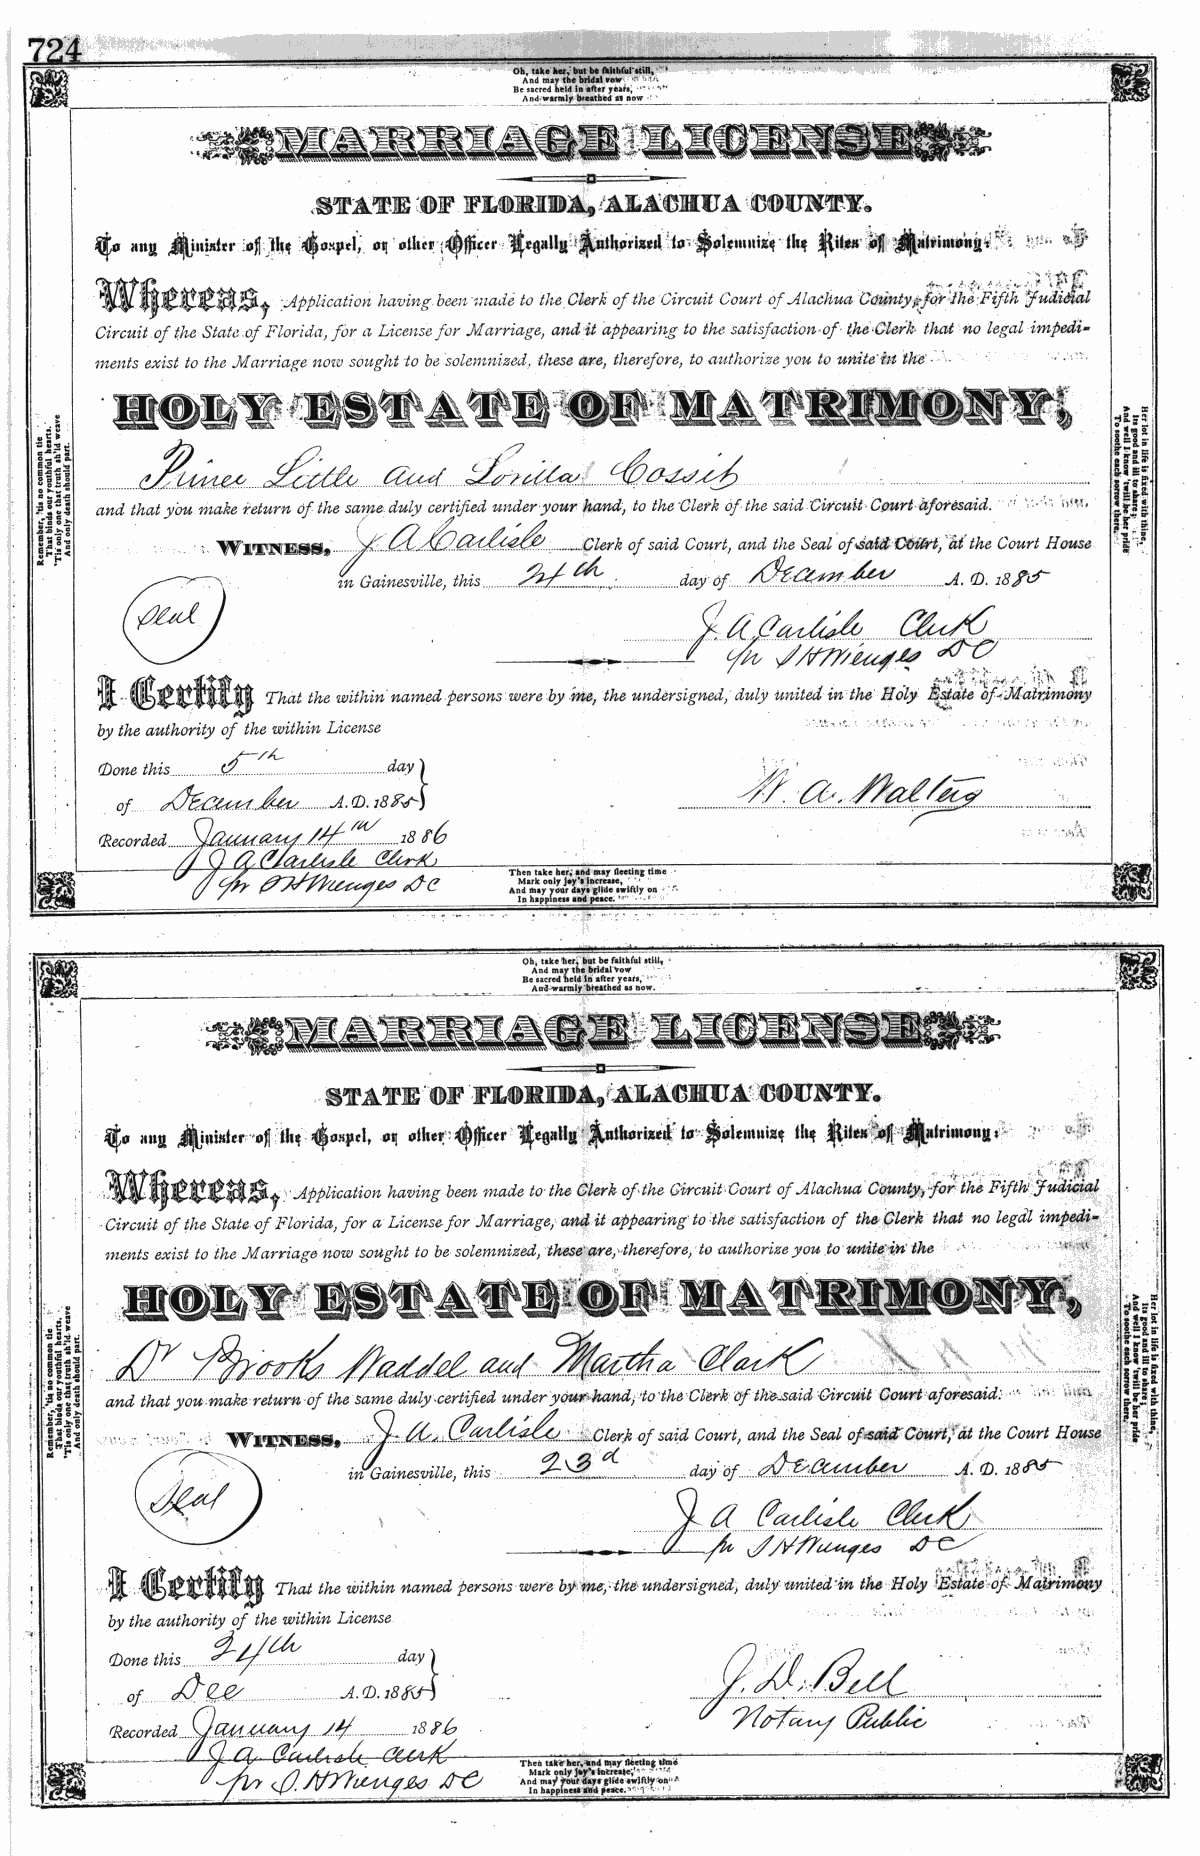 724
Oh, take her, but be faithful still,
And may the bridal vow
Be sacred held in after years,
And warmly breathed as now
MARRIAGE LICENSE
STATE OF FLORIDA, ALACHUA COUNTY.
To any Minister of the Gospel, or other Officer Legally Authorized to Solemnize the Rites of Matrimony:
Whereas, Application having been made to the Clerk of the Circuit Court of Alachua County, for the Fifth Judicial
Circuit of the State of Florida, for a License for Marriage, and it appearing to the satisfaction of the Clerk that no legal impedi-
ments exist to the Marriage now sought to be solemnized, these are, therefore, to authorize you to unite in the
HOLY ESTATE OF MATRIMONY,
Prince Little and Lorilla Cossit
and that you make return of the same duly certified under your hand, to the Clerk of the said Circuit Court aforesaid.
WITNESS, J A Carlisle Clerk of said Court, and the Seal of said Court, at the Court House
in Gainesville, this 24th day of December A. D. 1885
Seal
J. A Carlisle Clerk
pr S H Wienges DC
I Certify That the within named persons were by me, the undersigned, duly united in the Holy Estate of Matrimony
by the authority of the within License
Done this 5th day
of December A. D. 1885
W. A. Walters
Recorded January 14th 1886
J A Carlisle Clerk
pr S H Wienges DC
Remember, 'tis no common tie
That binds our youthful hearts.
'Tis only one that truth sh'ld weave
And only death should part.
Her lot in life is fixed with thine,
Its good and ill to share;
And well I know 'twill be her pride
To soothe each sorrow there.
Then take her, and may fleeting time
Mark only joy's increase,
And may your days glide swiftly on
In happiness and peace.
Oh, take her, but be faithful still,
And may the bridal vow
Be sacred held in after years,
And warmly breathed as now.
MARRIAGE LICENSE
STATE OF FLORIDA, ALACHUA COUNTY.
To any Minister of the Gospel, or other Officer Legally Authorized to Solemnize the Rites of Matrimony:
Whereas, Application having been made to the Clerk of the Circuit Court of Alachua County, for the Fifth Judicial
Circuit of the State of Florida, for a License for Marriage, and it appearing to the satisfaction of the Clerk that no legal impedi-
ments exist to the Marriage now sought to be solemnized, these are, therefore, to authorize you to unite in the
HOLY ESTATE OF MATRIMONY,
Dr Brooks Waddel and Martha Clark
and that you make return of the same duly certified under your hand, to the Clerk of the said Circuit Court aforesaid.
WITNESS, J. A. Carlisle Clerk of said Court, and the Seal of said Court, at the Court House
in Gainesville, this 23d day of December A. D. 1885
Seal
J A Carlisle Clerk
pr S H Wienges DC
I Certify That the within named persons were by me, the undersigned, duly united in the Holy Estate of Matrimony
by the authority of the within License
Done this 24th day
of Dec A. D. 1885
J. D. Bell
Notary Public
Recorded January 14 1886
J A Carlisle Clerk
pr S. H Wienges DC
Remember, 'tis no common tie
That binds our youthful hearts.
'Tis only one that truth sh'ld weave
And only death should part.
Her lot in life is fixed with thine,
Its good and ill to share;
And well I know 'twill be her pride
To soothe each sorrow there.
Then take her, and may fleeting time
Mark only joy's increase,
And may your days glide swiftly on
In happiness and peace.